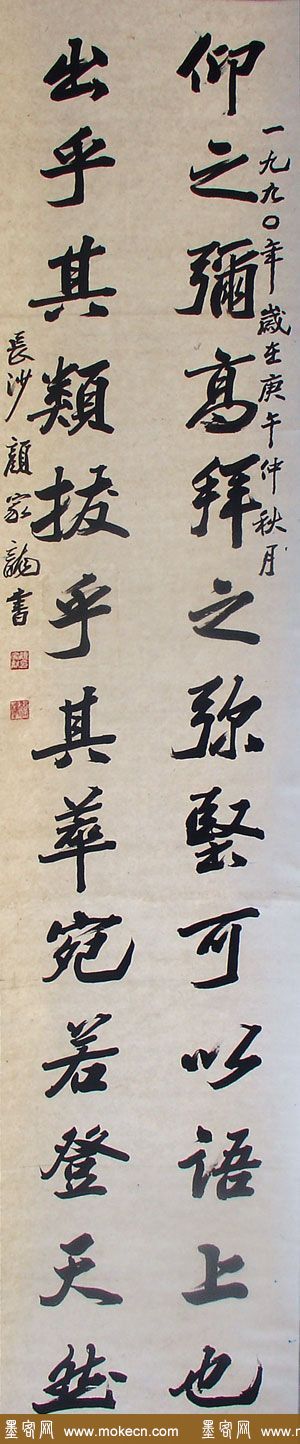 一九九〇年歲在庚午仲秋月
仰之彌高拜之弥堅可以語上也
出乎其類拔乎其萃宛若登天然
長沙顏家龍書
墨客网 www.mokecn.com 墨客网